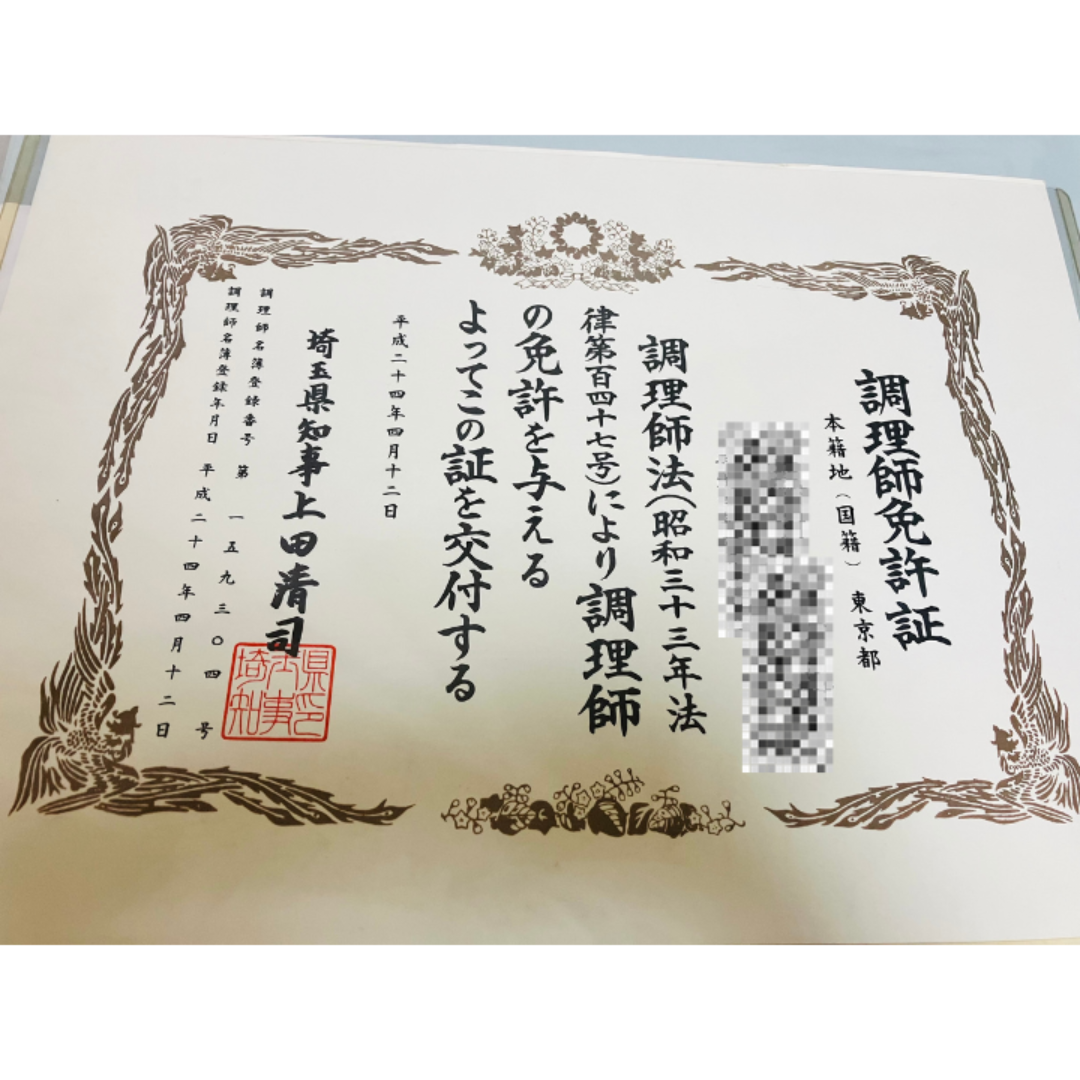 調理師免許証
本籍地(国籍) 東京都
調理師法(昭和三十三年法
律第百四十七号)により調理師
の免許を与える
よってこの証を交付する
平成二十四年四月十二日
埼玉県知事 上田清司
埼玉県知事印
調理師名簿登録番号 第 一五九三〇四 号
調理師名簿登録年月日 平成二十四年四月十二日